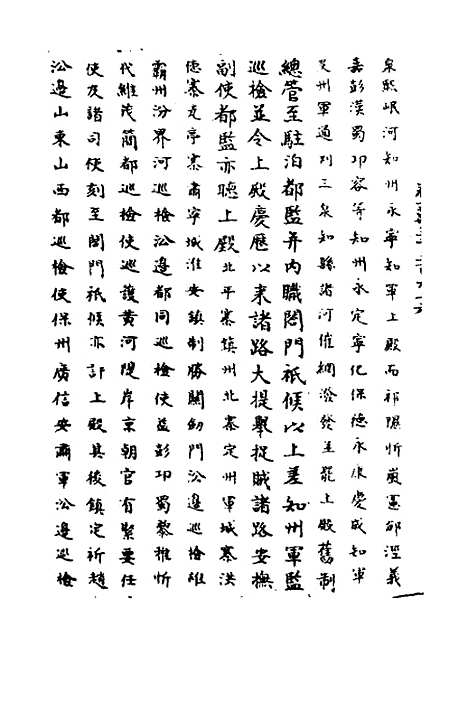 泉熙岷河知州永寧知軍上殿而祁隰忻嵐憲邠涇義
嘉彭漢蜀邛容等知州永定寧化保德永康慶成知軍
及州軍通判三泉知縣諸河催綱潑發至罷上殿舊制
總管至駐泊都監并內職閤門祇候以上差知州軍監
巡檢並令上殿慶曆以来諸路大提舉捉賊諸路安撫
副使都監亦聴上殿北平寨鎮州北寨定州軍城寨洪
德寨瓦亭寨肅寧城淮安鎮制勝關劒門沿邊巡檢雄
霸州汾界河巡檢沿邊都同巡檢使益彭邛蜀黎雅忻
代維茂簡都巡檢使巡護黃河隄岸京朝官有緊要任
使及諸司使副至閤門祇候亦許上殿其後鎮定祈趙
沿邊山東山西都巡檢使保州廣信安肅軍沿邊巡檢